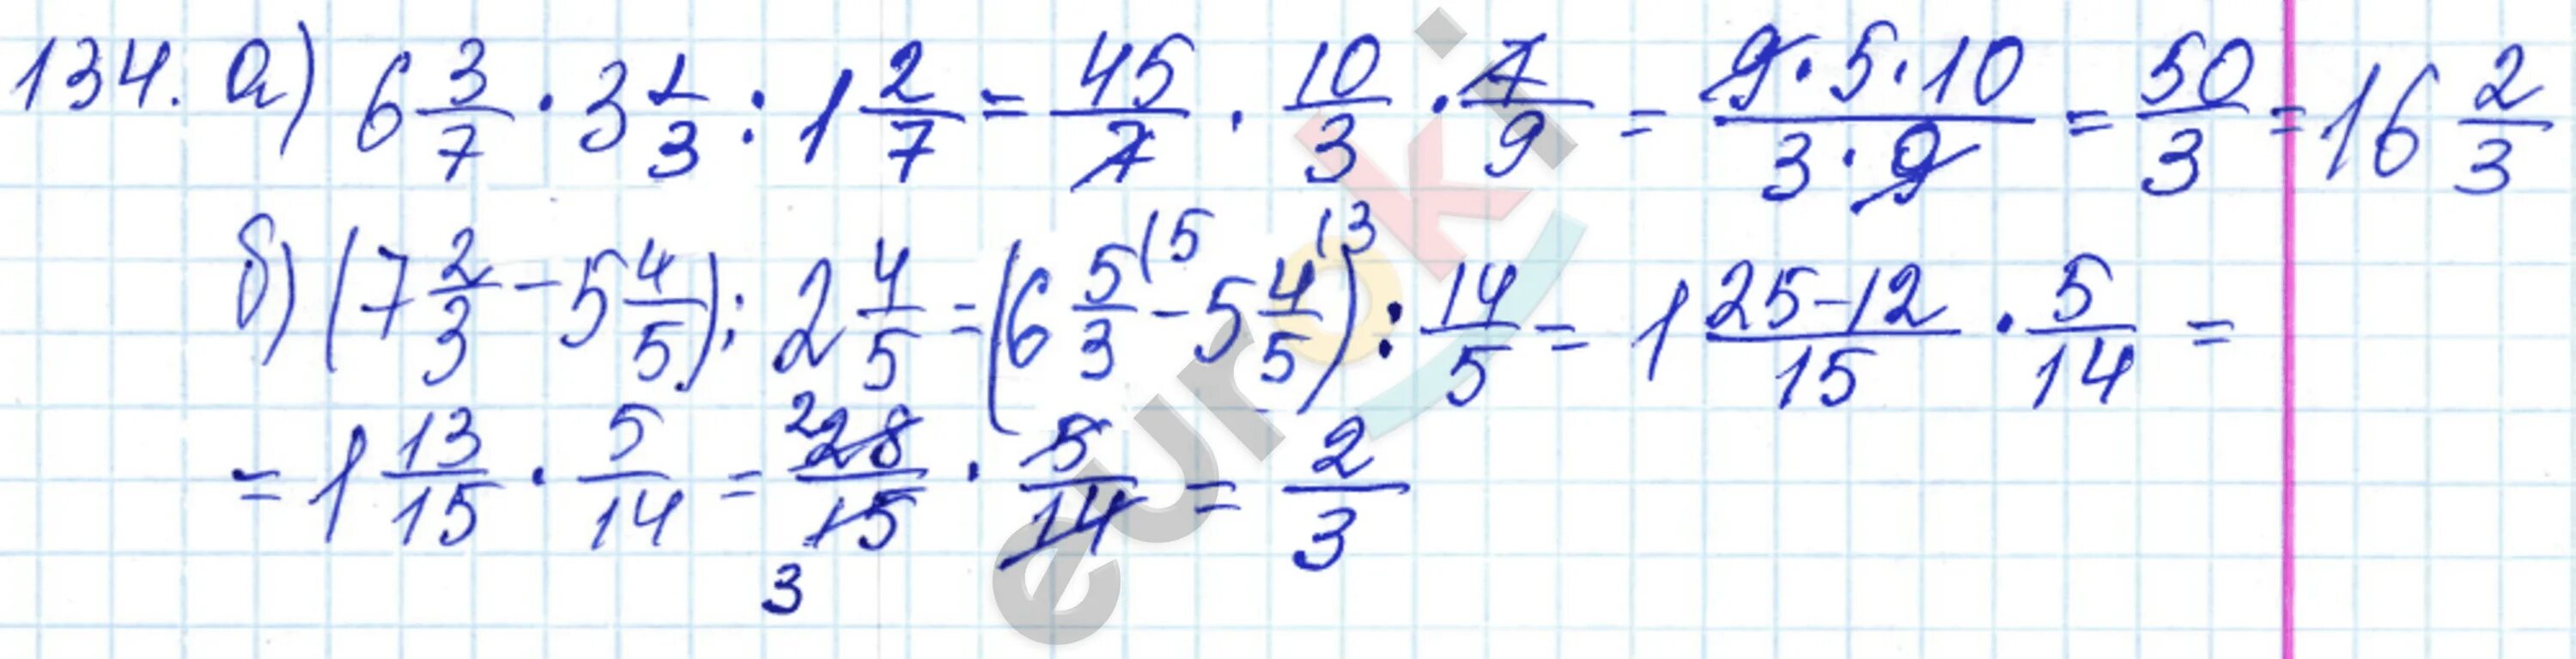 134. а) 6 3/7 · 3 1/3 : 1 2/7 = 45/7 · 10/3 · 7/9 = 9·5·10/3·9 = 50/3 = 16 2/3
б) (7 2/3 − 5 4/5) : 2 4/5 = (6 5/3 (5 − 5 4/5 (3) : 14/5 = 1 25−12/15 · 5/14 =
= 1 13/15 · 5/14 = 2 28/15 3 · 5/14 = 2/3
euroki